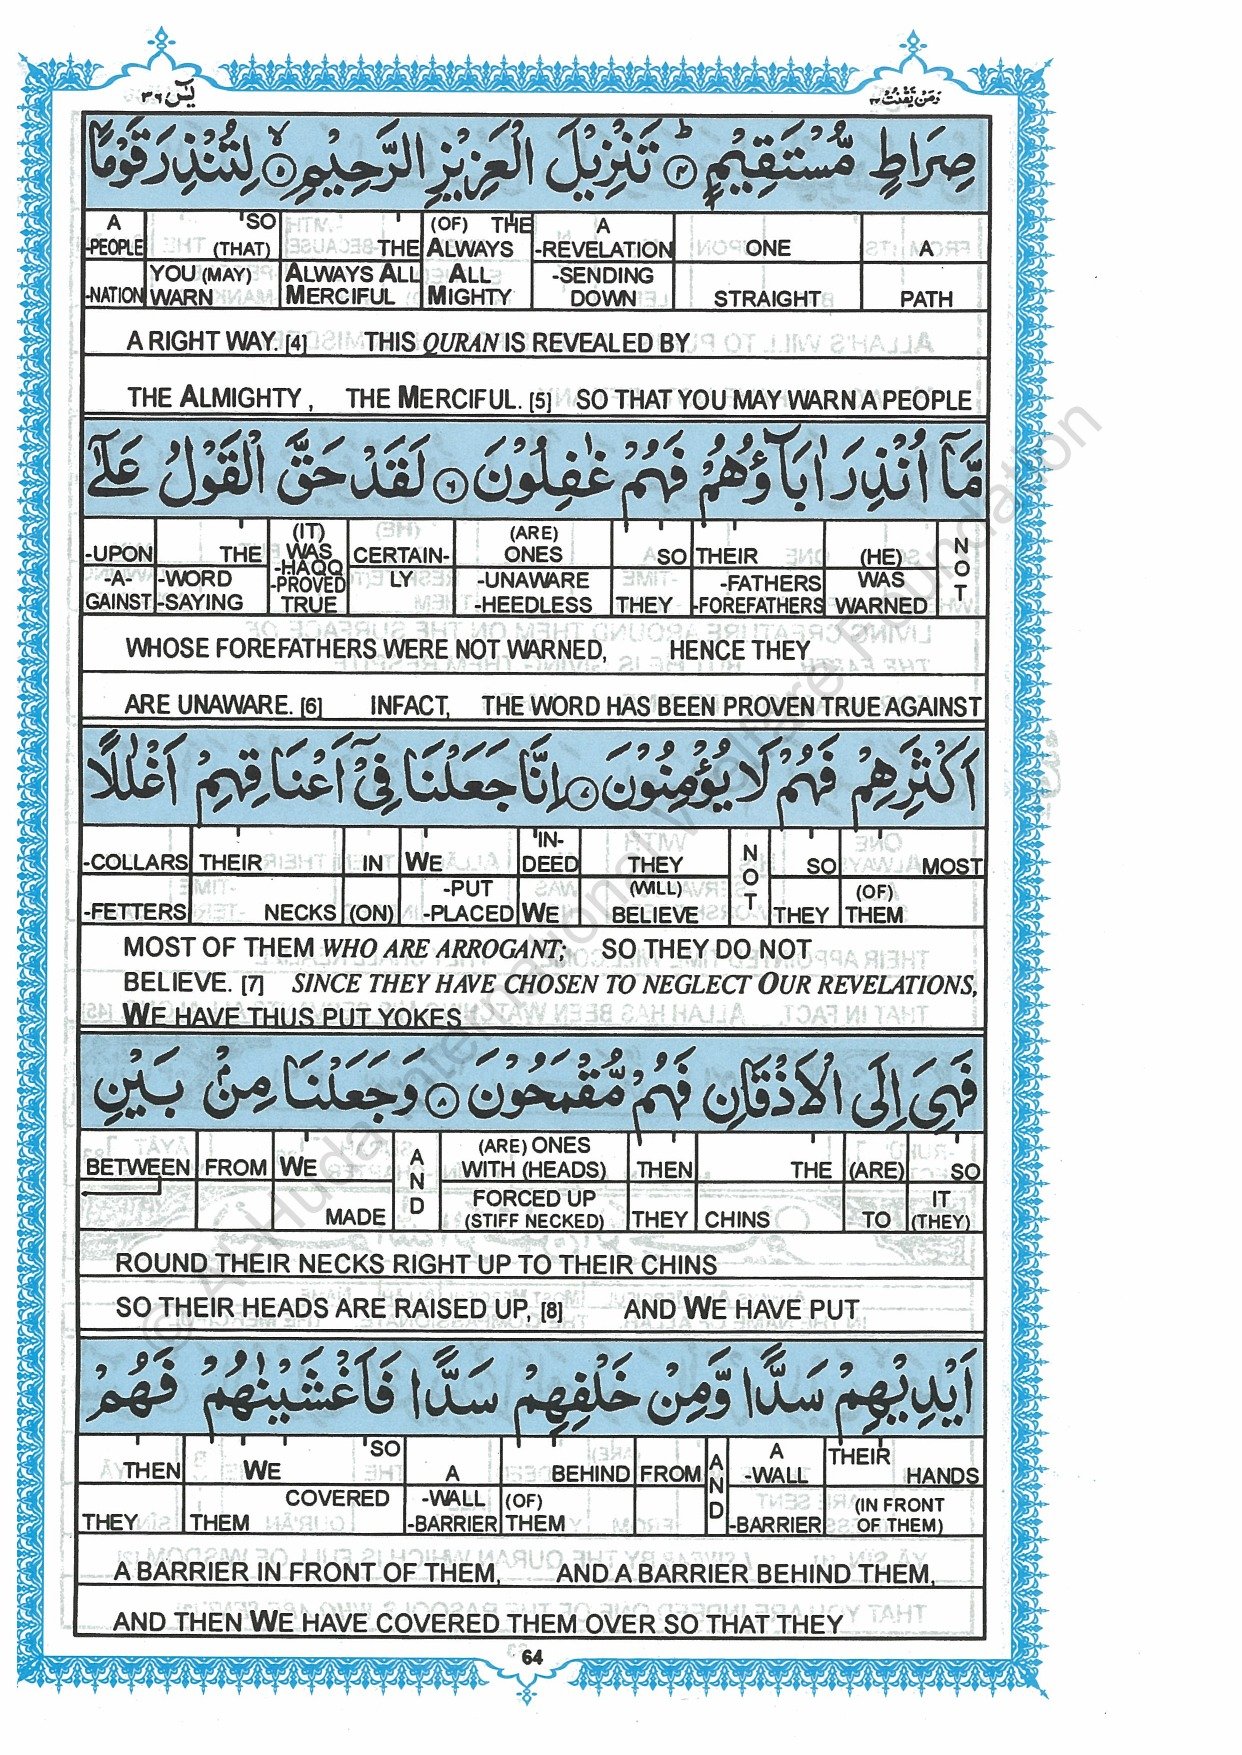 يٰسٓ ٣٦
وَمَنْ يَّقْنُتْ ٢٢
صِرَاطٍ مُّسْتَقِيْمٍ ۴ تَنْزِيْلَ الْعَزِيْزِ الرَّحِيْمِ ۵ لِتُنْذِرَ قَوْمًا
A 'SO ' (OF) THE A
-PEOPLE (THAT) THE ALWAYS -REVELATION ONE A
YOU (MAY) ALWAYS ALL ALL -SENDING
-NATION WARN MERCIFUL MIGHTY DOWN STRAIGHT PATH
A RIGHT WAY. [4] THIS QURAN IS REVEALED BY
THE ALMIGHTY, THE MERCIFUL. [5] SO THAT YOU MAY WARN A PEOPLE
مَّآ اُنْذِرَ اٰبَآؤُهُمْ فَهُمْ غٰفِلُوْنَ ۶ لَقَدْ حَقَّ الْقَوْلُ عَلٰٓى
-UPON THE (IT) WAS -HAQQ CERTAIN- (ARE) ONES SO THEIR (HE) NOT
-A- -WORD -PROVED LY -UNAWARE -FATHERS WAS
GAINST -SAYING TRUE -HEEDLESS THEY -FOREFATHERS WARNED
WHOSE FOREFATHERS WERE NOT WARNED, HENCE THEY
ARE UNAWARE. [6] INFACT, THE WORD HAS BEEN PROVEN TRUE AGAINST
اَكْثَرِهِمْ فَهُمْ لَا يُؤْمِنُوْنَ ۷ اِنَّا جَعَلْنَا فِىْٓ اَعْنَاقِهِمْ اَغْلٰلًا
-COLLARS THEIR IN WE 'IN-DEED THEY NOT SO MOST
-PUT (WILL) (OF)
-FETTERS NECKS (ON) -PLACED WE BELIEVE THEY THEM
MOST OF THEM WHO ARE ARROGANT; SO THEY DO NOT
BELIEVE. [7] SINCE THEY HAVE CHOSEN TO NEGLECT OUR REVELATIONS,
WE HAVE THUS PUT YOKES
فَهِىَ اِلَى الْاَذْقَانِ فَهُمْ مُّقْمَحُوْنَ ۸ وَجَعَلْنَا مِنْۢ بَيْنِ
BETWEEN FROM WE AND (ARE) ONES WITH (HEADS) THEN THE (ARE) SO
FORCED UP IT
MADE (STIFF NECKED) THEY CHINS TO (THEY)
ROUND THEIR NECKS RIGHT UP TO THEIR CHINS
SO THEIR HEADS ARE RAISED UP, [8] AND WE HAVE PUT
اَيْدِيْهِمْ سَدًّا وَّمِنْ خَلْفِهِمْ سَدًّا فَاَغْشَيْنٰهُمْ فَهُمْ
'SO A THEIR
THEN WE A BEHIND FROM AND -WALL HANDS
COVERED -WALL (OF) (IN FRONT
THEY THEM -BARRIER THEM -BARRIER OF THEM)
A BARRIER IN FRONT OF THEM, AND A BARRIER BEHIND THEM,
AND THEN WE HAVE COVERED THEM OVER SO THAT THEY
64
© Al Huda International Welfare Foundation